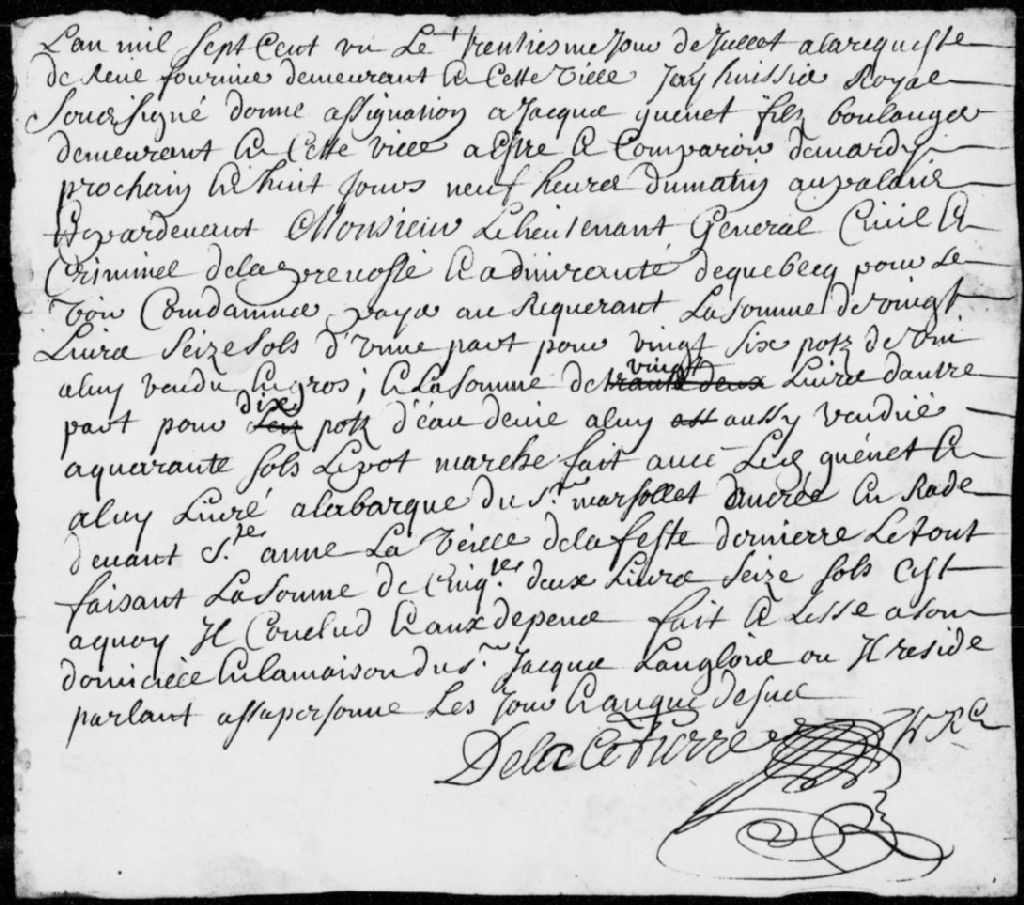 Lan mil sept cent un Le trentiesme jour de Jullet a la requeste
de René fournier demeurant En Cette Ville Jay huissier Royal
soussigné donné assignation a Jacques guenet filz boulanger
demeurant En Cette ville a Estre Et Comparoir de mardy
prochain En huit jours neuf heures du matin au palais
Et pardevant Monsieur Le lieutenant General Civil Et
Criminel de la prevosté Et admirauté de quebecq pour se
Voir Condamner payer au Requerant La somme de vingt
Livres seize sols d'Une part pour vingt six potz de vin
a luy vendu En gros ; Et La somme de trante deux vingt Livres dautre
part pour dix potz d'eau devie a luy aussy vendue
a quarante sols Le pot marché fait avec Led guenet Et
a luy Livré a la barque du Sr. marsollet ancrée En Rade
devant Ste. anne La Veille de la feste derniere Le tout
faisant La somme de Cinqte. deux Livres seize sols Cest
a quoy Il Conclud Et aux depens fait Et Lesse a son
domicille En la maison du Sr. Jacques Langlois ou Il reside
parlant assa personne Les jour Et an que desus
De la Cetierre hr. R.